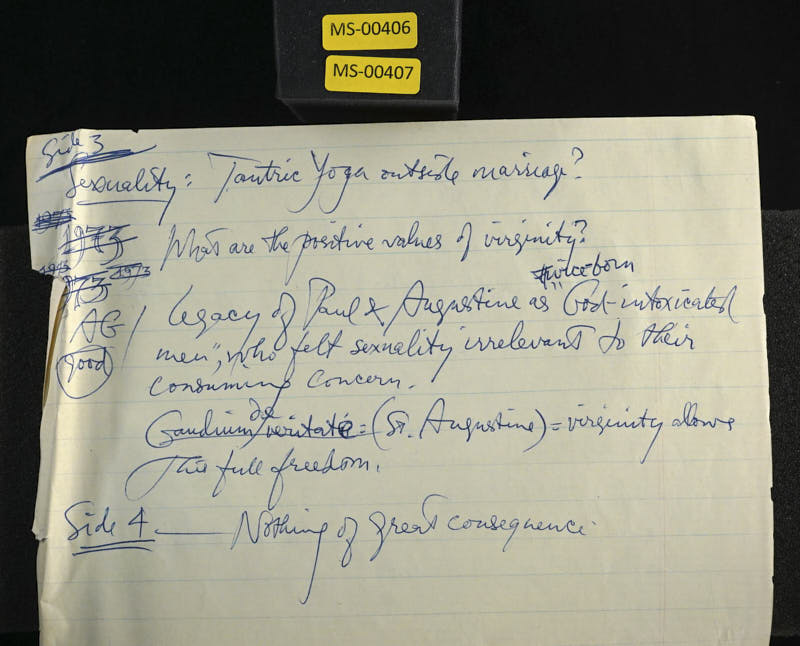 MS-00406
MS-00407
Side 3
Sexuality: Tantric Yoga outside marriage?
1973
1973 What are the positive values of virginity?
1973 twiceborn
'73
AG / Legacy of Paul & Augustine as "God-intoxicated
good men", who felt sexuality irrelevant to their
consuming concern.
Gaudium de veritate = (St. Augustine) = virginity allows
This full freedom.
Side 4 — Nothing of great consequence.